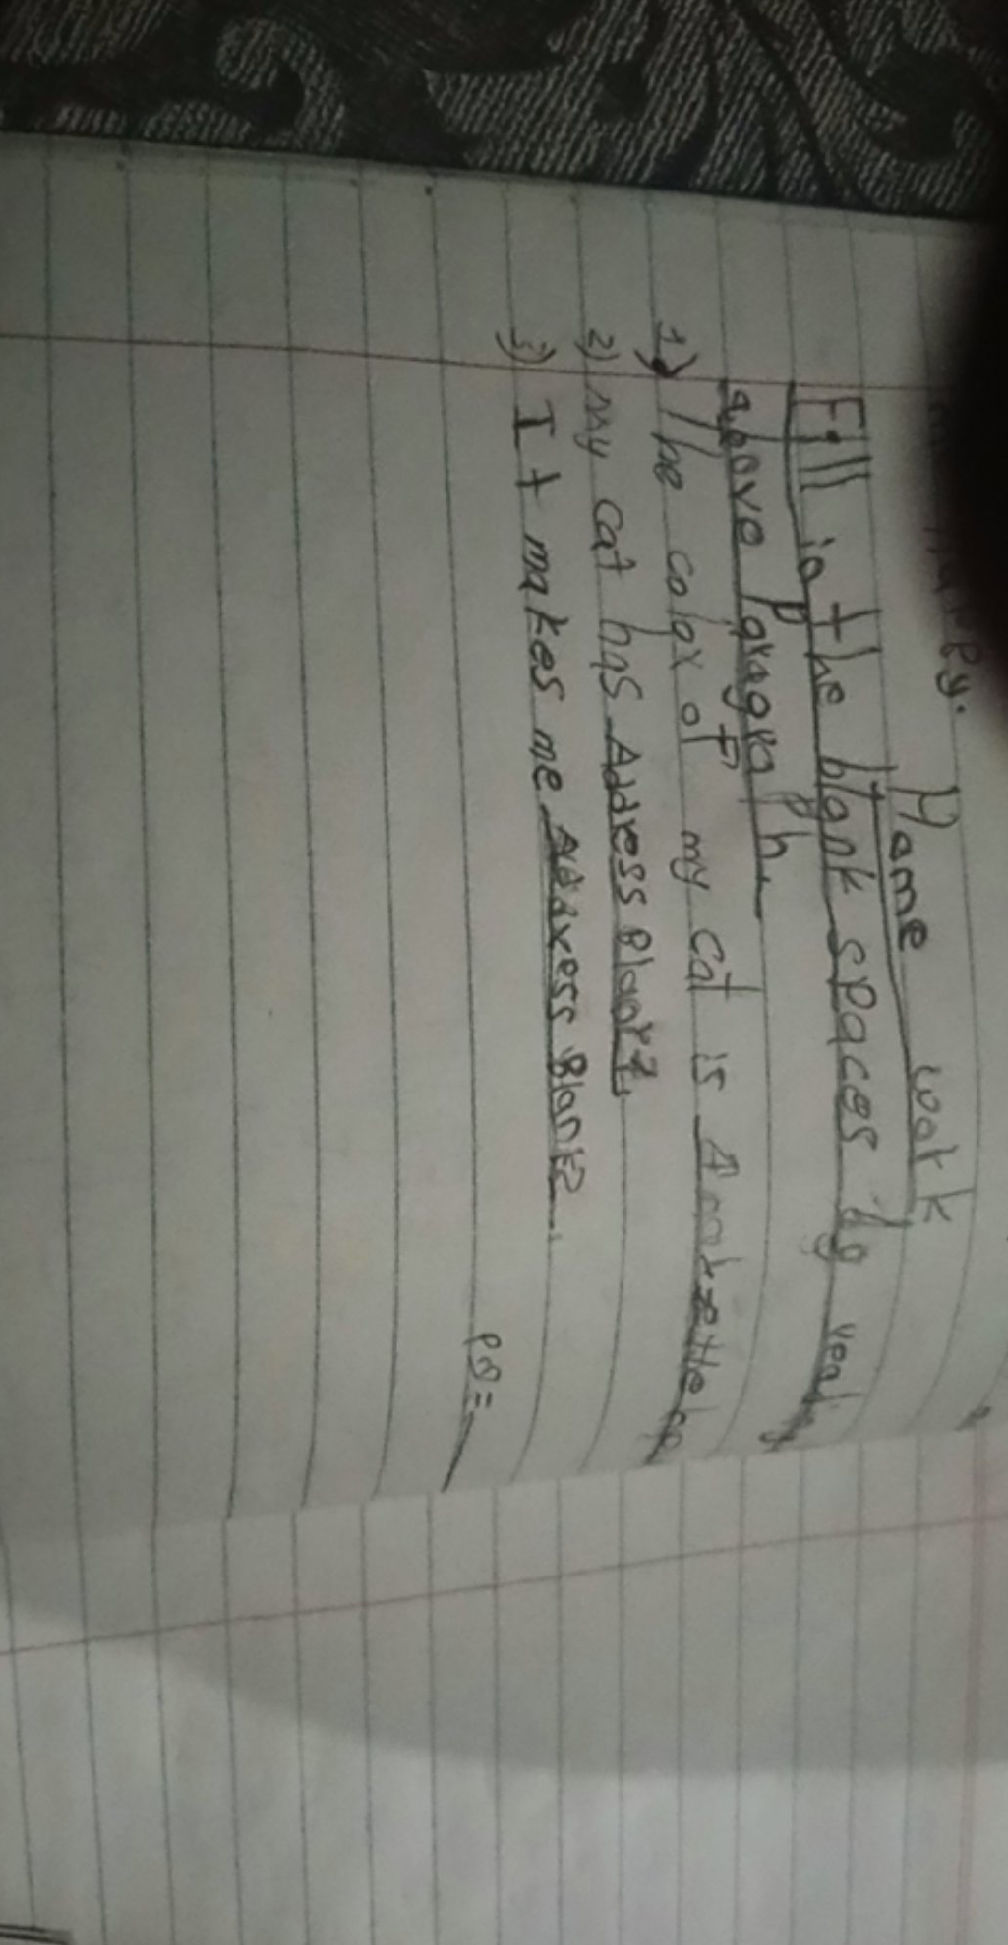 py.
Home work
Fill in the blank spaces by reading
above paragraph.
1) The color of my cat is
2) my cat has Address Blank
3) It makes me Address Blank